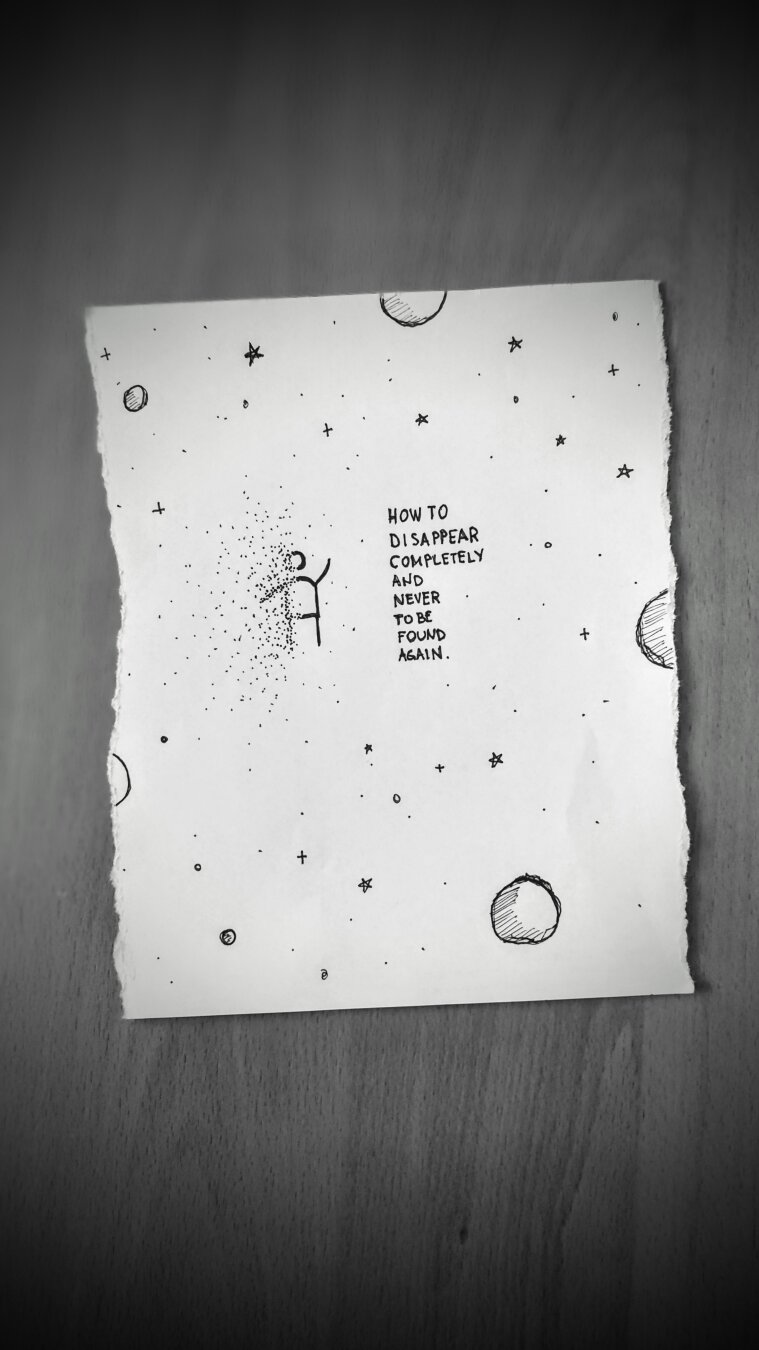 HOW TO
DISAPPEAR
COMPLETELY
AND
NEVER
TO BE
FOUND
AGAIN.